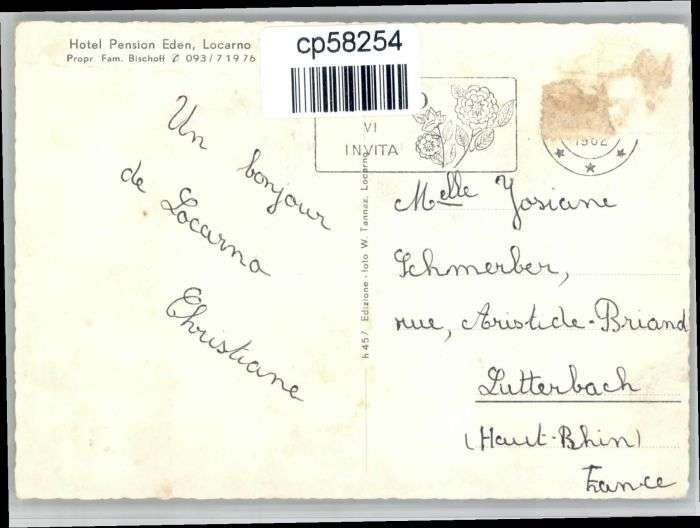 Hotel Pension Eden, Locarno
Propr. Fam. Bischoff ✆ 093/71976
cp58254
VI
INVITA
1962
Un bonjour
de Locarno
Christiane
h 457 Edizione - foto W. Tannaz, Locarno
Melle Josiane
Schmerber,
rue, Aristide-Briand
Lutterbach
(Haut-Rhin)
France